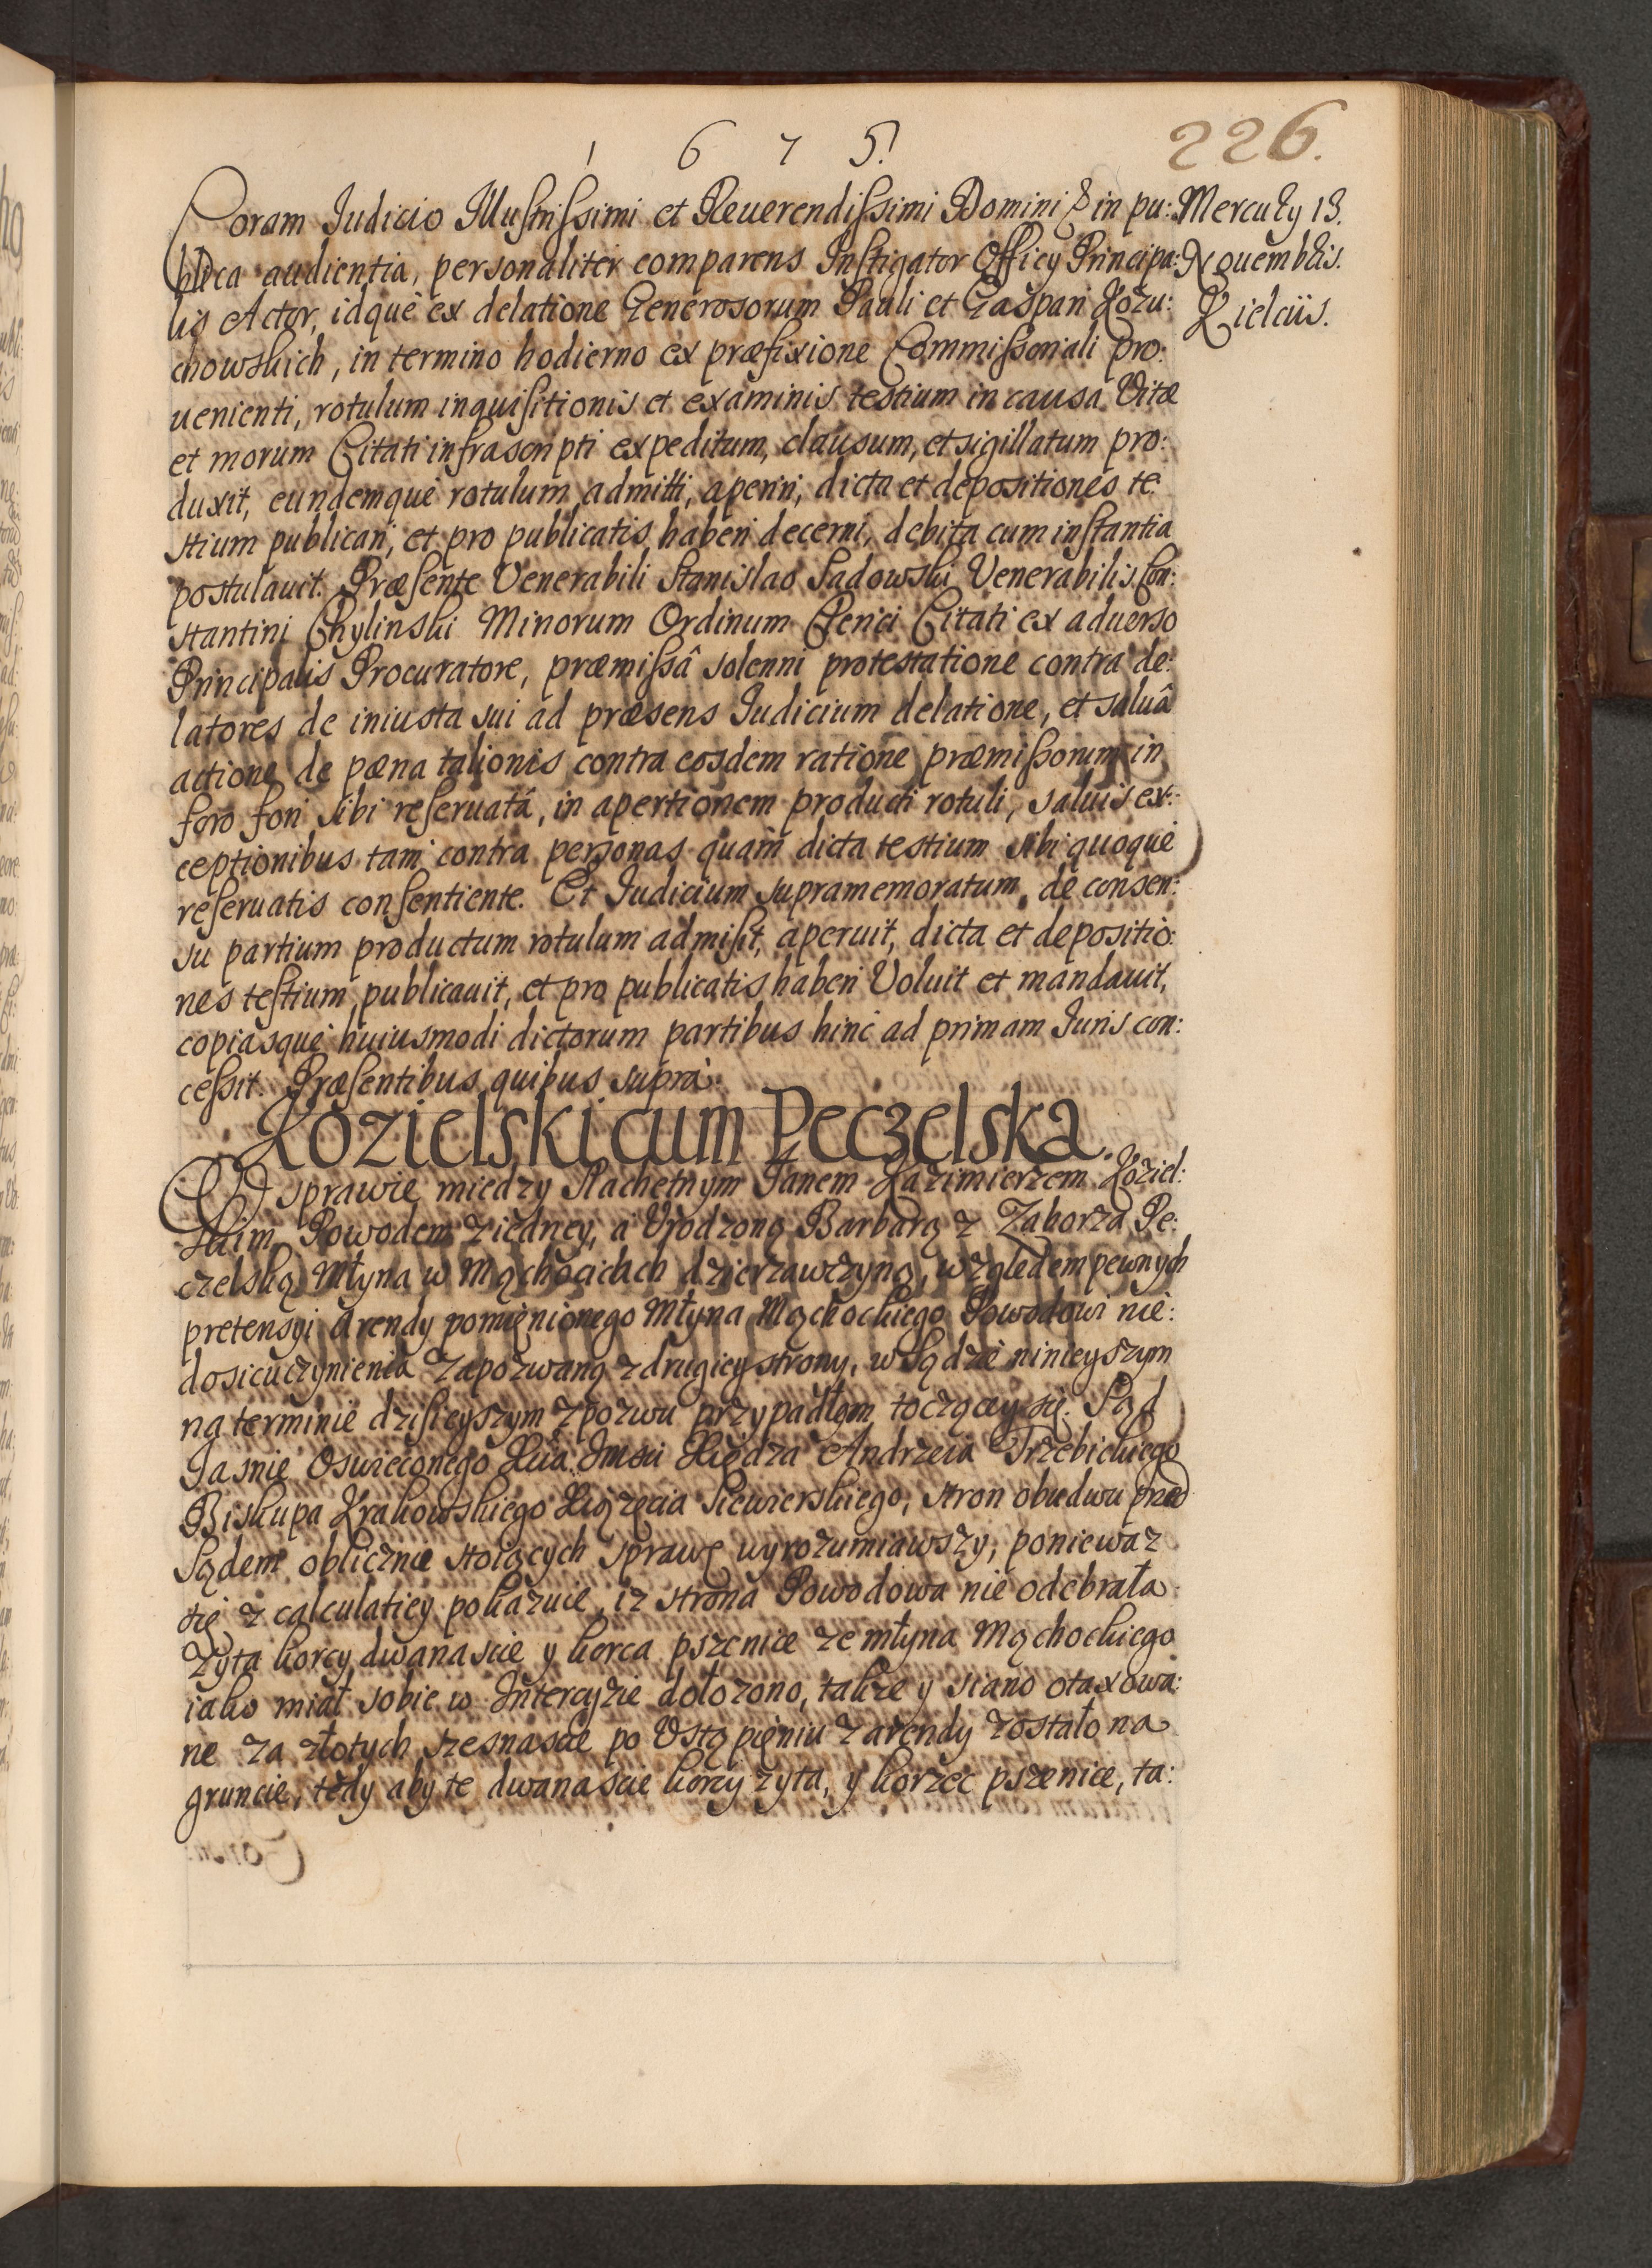 1675.
226.
Coram Iudicio Illustrissimi et Reuerendissimi Domini & in pu:
blica audientia, personaliter comparens Instigator Officy Principa:
lis Actor, idque ex delatione Generosorum Pauli et Caspari Kozu:
chowskich, in termino hodierno ex præfixione Commissoriali pro:
uenienti, rotulum inquisitionis et examinis testium in causa Vitæ
et morum Citati infrascripti expeditum, clausum, et sigillatum pro:
duxit, eundemque rotulum admitti, aperiri, dicta et depositiones te:
stium publicari, et pro publicatis haberi decerni, debita cum instantia
postulauit. Præsente Venerabili Stanislao Sadowski Venerabilis Con:
stantini Chylinski Minorum Ordinum Clerici Citati ex aduerso
Principalis Procuratore, præmissâ solenni protestatione contra de:
latores de iniusta sui ad præsens Iudicium delatione, et saluâ
actione de pæna talionis contra eosdem ratione præmissorum in
foro fori sibi reseruatâ, in apertionem producti rotuli, saluis ex:
ceptionibus tam contra personas quam dicta testium sibi quoque
reseruatis consentiente. Et Iudicium supramemoratum, de consen:
su partium productum rotulum admisit, aperuit, dicta et depositio:
nes testium publicauit, et pro publicatis haberi Voluit et mandauit,
copiasque huiusmodi dictorum partibus hinc ad primam Iuris con:
cessit. Præsentibus quibus supra.
Mercury 13.
Nouembris.
Kielciis.
Kozielski cum Peczelska.
W sprawie miedzy Slachetnym Janem Kazimierzem Koziel:
skim Powodem z iedney, a Vrodzoną Barbarą z Zaborza Pe:
czelską Młyna w Mąchocicach dzierzawczyną, względem pewnych
pretensyi Arendy pomięnionego Młyna Mąchockiego Powodowi nie:
dosicuczynienia zapozwaną z drugiey strony, w Sądzie ninieyszym
na terminie dzisieyszym z pozwu przypadłem toczącey się. Sąd
Jasnie Oswieconego Xcia Jmsci Xiędza Andrzeia Trzebickiego
Biskupa Krakowskiego Xiązęcia Siewierskiego, stron obudwu przed
Sądem oblicznie stoiących sprawę wyrozumiawszy, poniewaz
się z calculatiey pokazuie, iz strona Powodowa nie odebrała
Zyta korcy dwanascie y korca pszenice ze młyna Mąchockiego
iako miał sobie w Intercyzie dołozono, takze y siano otaxowa:
ne za złotych szesnascie po Vstąpięniu z arendy zostało na
gruncie, tedy aby te dwanascie korcy zyta, y korzec pszenice, ta: